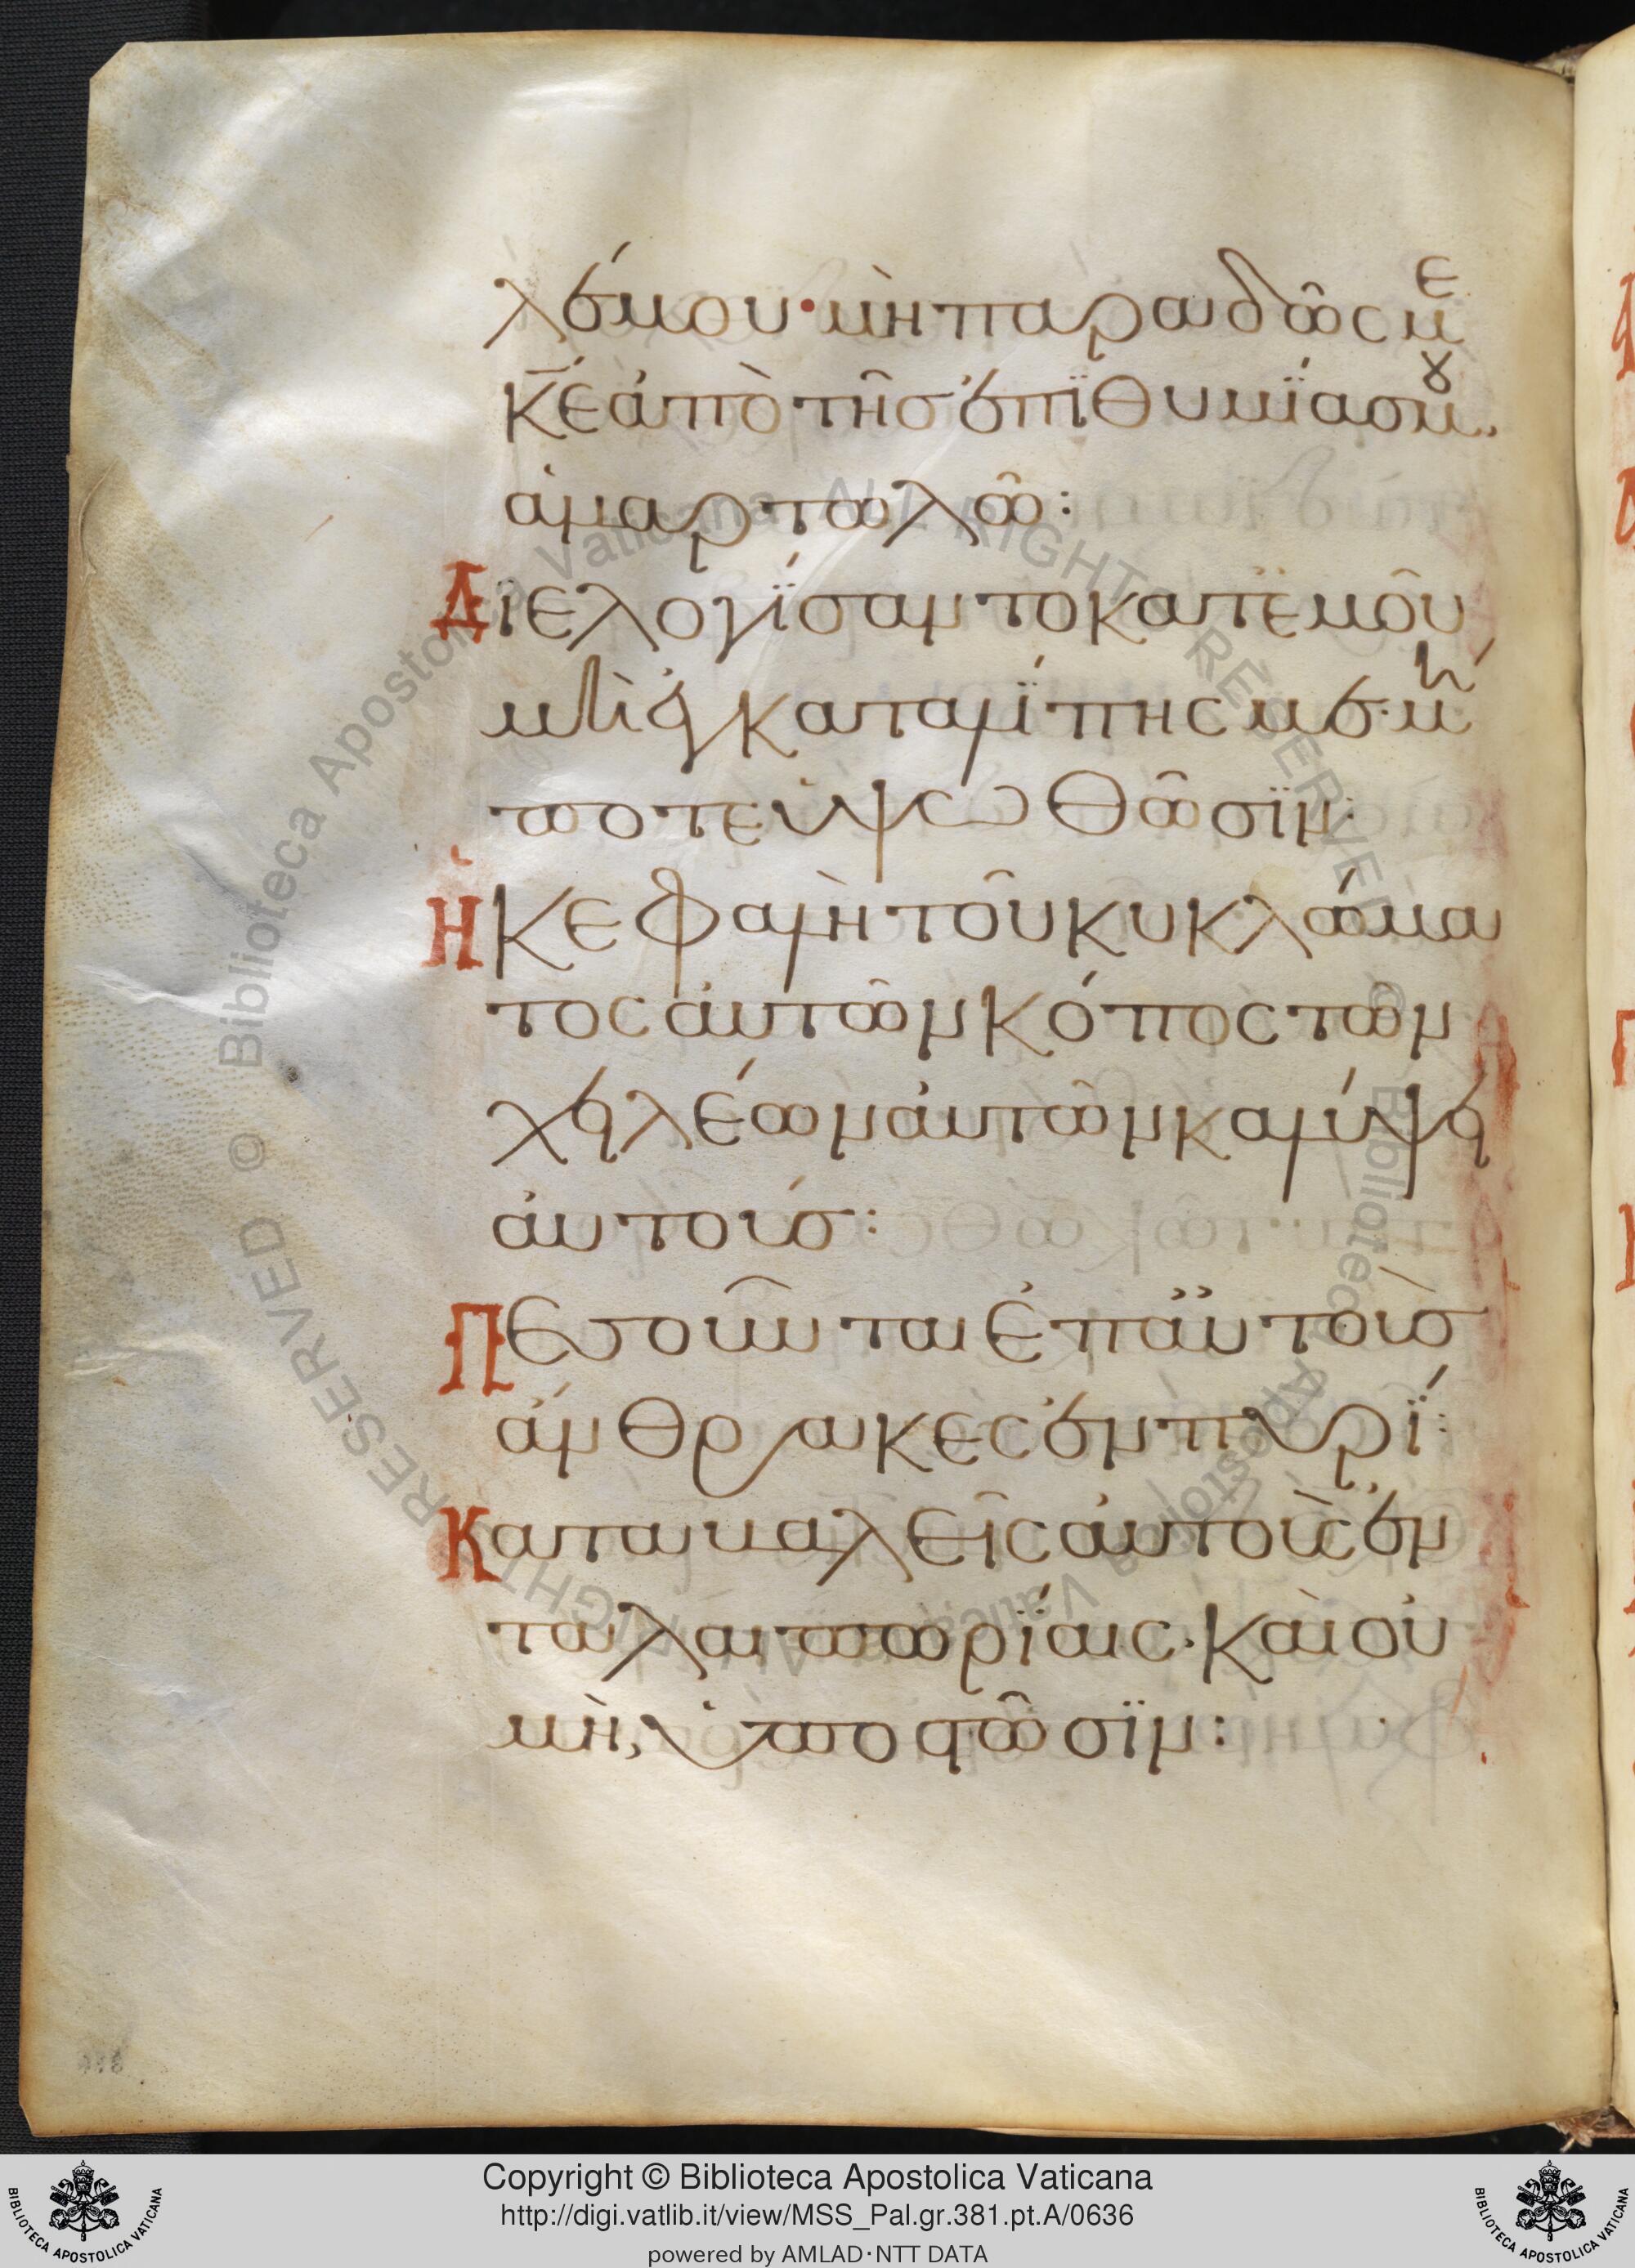 λέμου· μὴ παραδῶς μ ε
κ̅ε̅ ἀπὸ τῆς ἐπϊθυμΐας μου.
ἁμαρτωλῶ:
Διελογΐσαντο κατ ἐμοῦ
μὴ ἐγκαταλΐπης με· μή
ποτε ὑψωθῶσϊν:
Ἡ κεφαλὴ τοῦ κυκλώμα
τος ἀυτῶν κόπος τῶν
χειλέων ἀυτῶν καλύψει
ἀυτούσ:
Πεσοῦνται ἐπ ἀυτοὺσ
ἄνθρακες ἐν πυρΐ:
Καταβαλεῖς ἀυτοὺς ἐν
ταλαιπωρΐαις. καὶ οὐ
μὴ, ὑποστῶσϊν:
Copyright © Biblioteca Apostolica Vaticana
http://digi.vatlib.it/view/MSS_Pal.gr.381.pt.A/0636
powered by AMLAD·NTT DATA
BIBLIOTECA APOSTOLICA VATICANA
BIBLIOTECA APOSTOLICA VATICANA